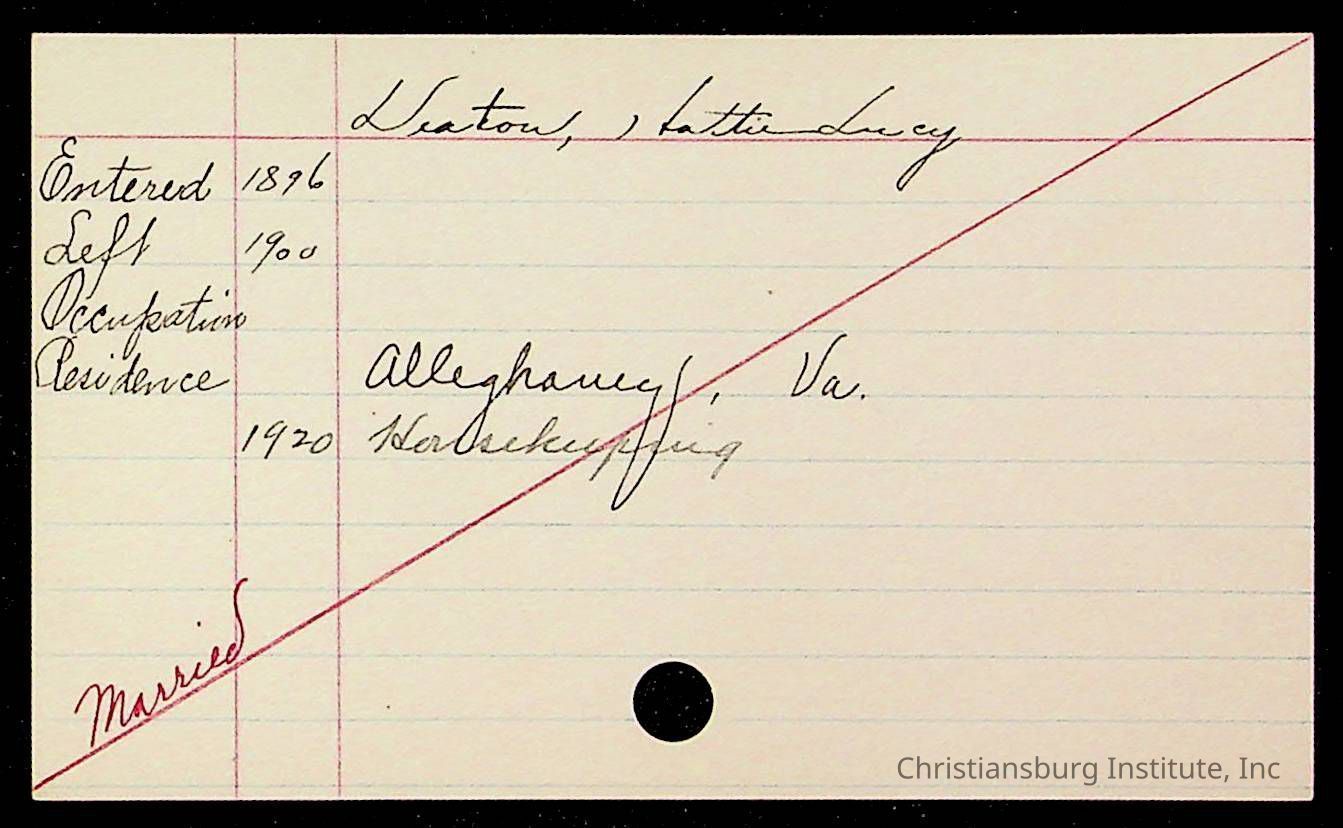 Deaton, Hattie Lucy
Entered 1896
Left 1900
Occupation
Residence Alleghaney, Va.
1920 Housekeeping
Married
Christiansburg Institute, Inc